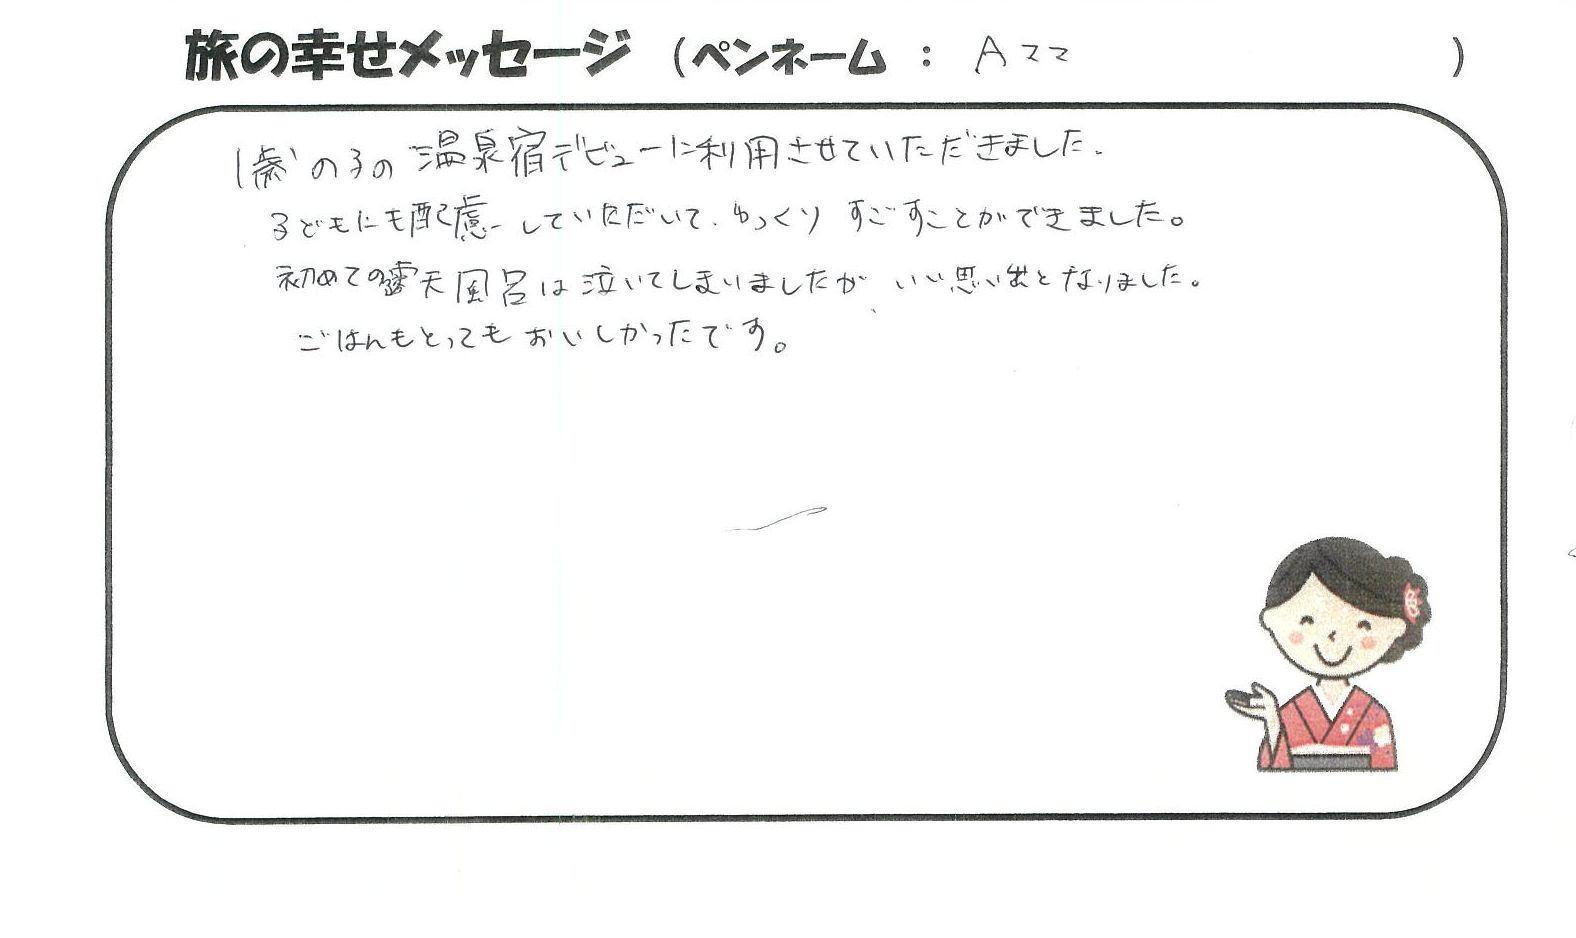 旅の幸せメッセージ (ペンネーム : Aママ )
1歳の子の温泉宿デビューに利用させていただきました.
子どもにも配慮していただいて、ゆっくりすごすことができました。
初めての露天風呂は泣いてしまいましたが、いい思い出となりました。
ごはんもとってもおいしかったです。